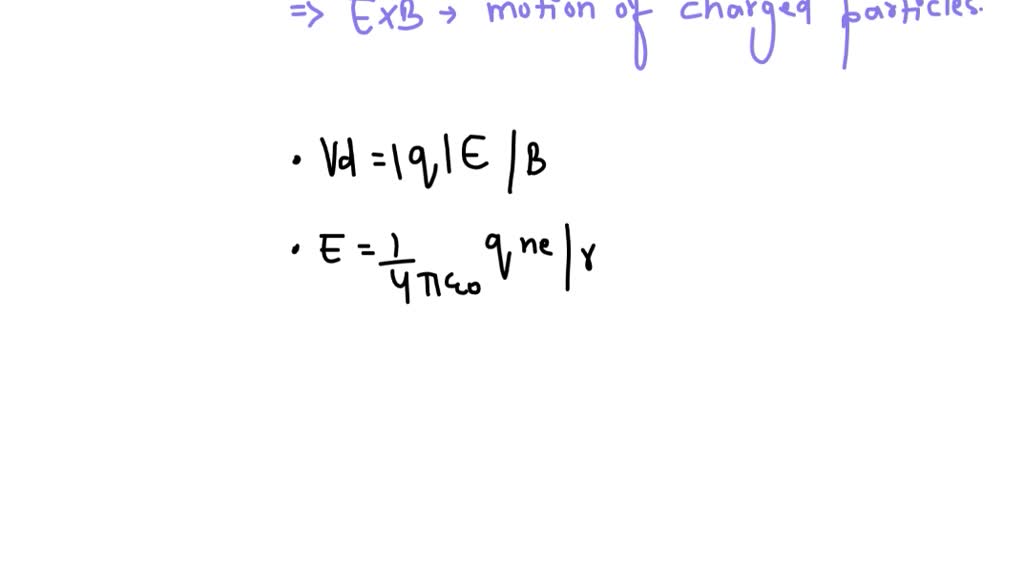 => E×B → motion of charged particles.
• Vd = |q|E / B
• E = 1/4πε0 q ne / r